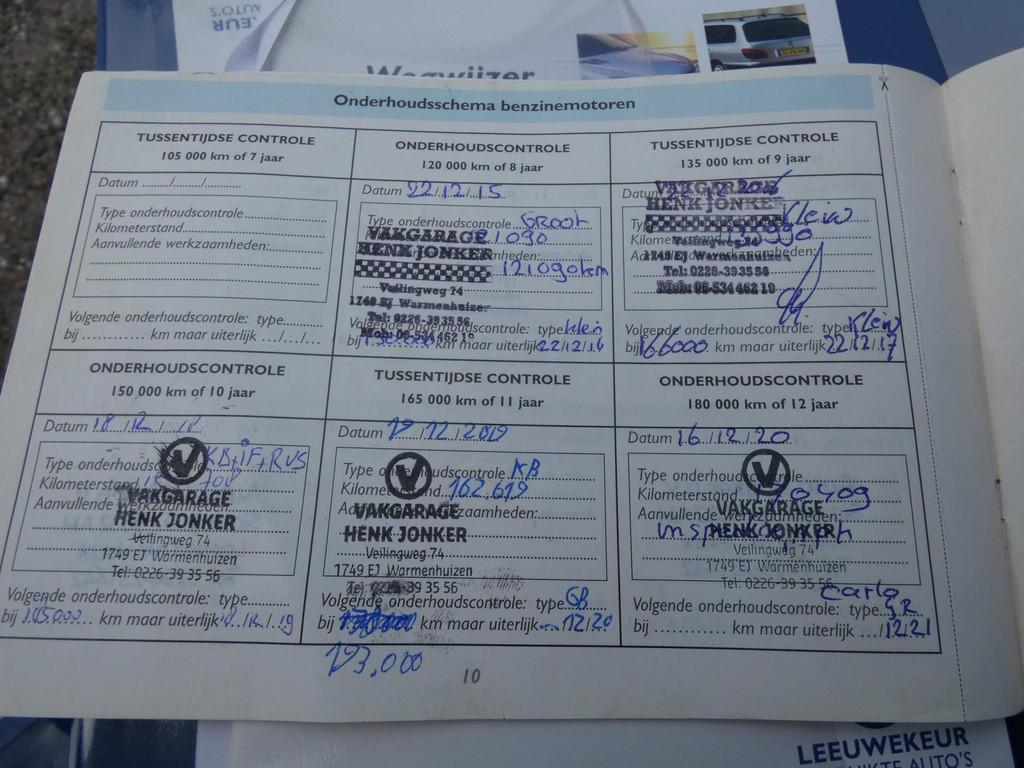 .EUR
AUTO'S
Wegwijzer
Onderhoudsschema benzinemotoren
TUSSENTIJDSE CONTROLE
105 000 km of 7 jaar
Datum ....../......./...........
Type onderhoudscontrole
Kilometerstand
Aanvullende werkzaamheden:
Volgende onderhoudscontrole: type
bij ............ km maar uiterlijk .../.../...
ONDERHOUDSCONTROLE
120 000 km of 8 jaar
Datum 22/12/15
Type onderhoudscontrole Groot
VAKGARAGE
HENK JONKER
121090km
Veilingweg 74
1749 EJ Warmenhuizen
Tel: 0226-39 35 56
Mob: 06-534 462 10
Volgende onderhoudscontrole: type klein
bij km maar uiterlijk 22/12/16
TUSSENTIJDSE CONTROLE
135 000 km of 9 jaar
Datum
VAKGARAGE
HENK JONKER
Klein
Veilingweg 74
1749 EJ Warmenhuizen
Tel: 0226-39 35 56
Mob: 06-534 462 10
Volgende onderhoudscontrole: type Klein
bij 166000 km maar uiterlijk 22/12/17
ONDERHOUDSCONTROLE
150 000 km of 10 jaar
Datum 18/12/18
Type onderhoudscontrole KB+iF+RVS
Kilometerstand
Aanvullende werkzaamheden:
V
VAKGARAGE
HENK JONKER
Veilingweg 74
1749 EJ Warmenhuizen
Tel: 0226-39 35 56
Volgende onderhoudscontrole: type
bij km maar uiterlijk 18/12/19
TUSSENTIJDSE CONTROLE
165 000 km of 11 jaar
Datum 17/12/2019
Type onderhoudscontrole KB
Kilometerstand 162,619
Aanvullende werkzaamheden:
V
VAKGARAGE
HENK JONKER
Veilingweg 74
1749 EJ Warmenhuizen
Tel: 0226-39 35 56
Volgende onderhoudscontrole: type GB
bij km maar uiterlijk 12/20
173.000
ONDERHOUDSCONTROLE
180 000 km of 12 jaar
Datum 16/12/20
Type onderhoudscontrole
Kilometerstand
Aanvullende werkzaamheden:
V
VAKGARAGE
HENK JONKER
Veilingweg 74
1749 EJ Warmenhuizen
Tel: 0226-39 35 56
Volgende onderhoudscontrole: type GR
bij ............ km maar uiterlijk .../12/21
10
LEEUWEKEUR
AUTO'S